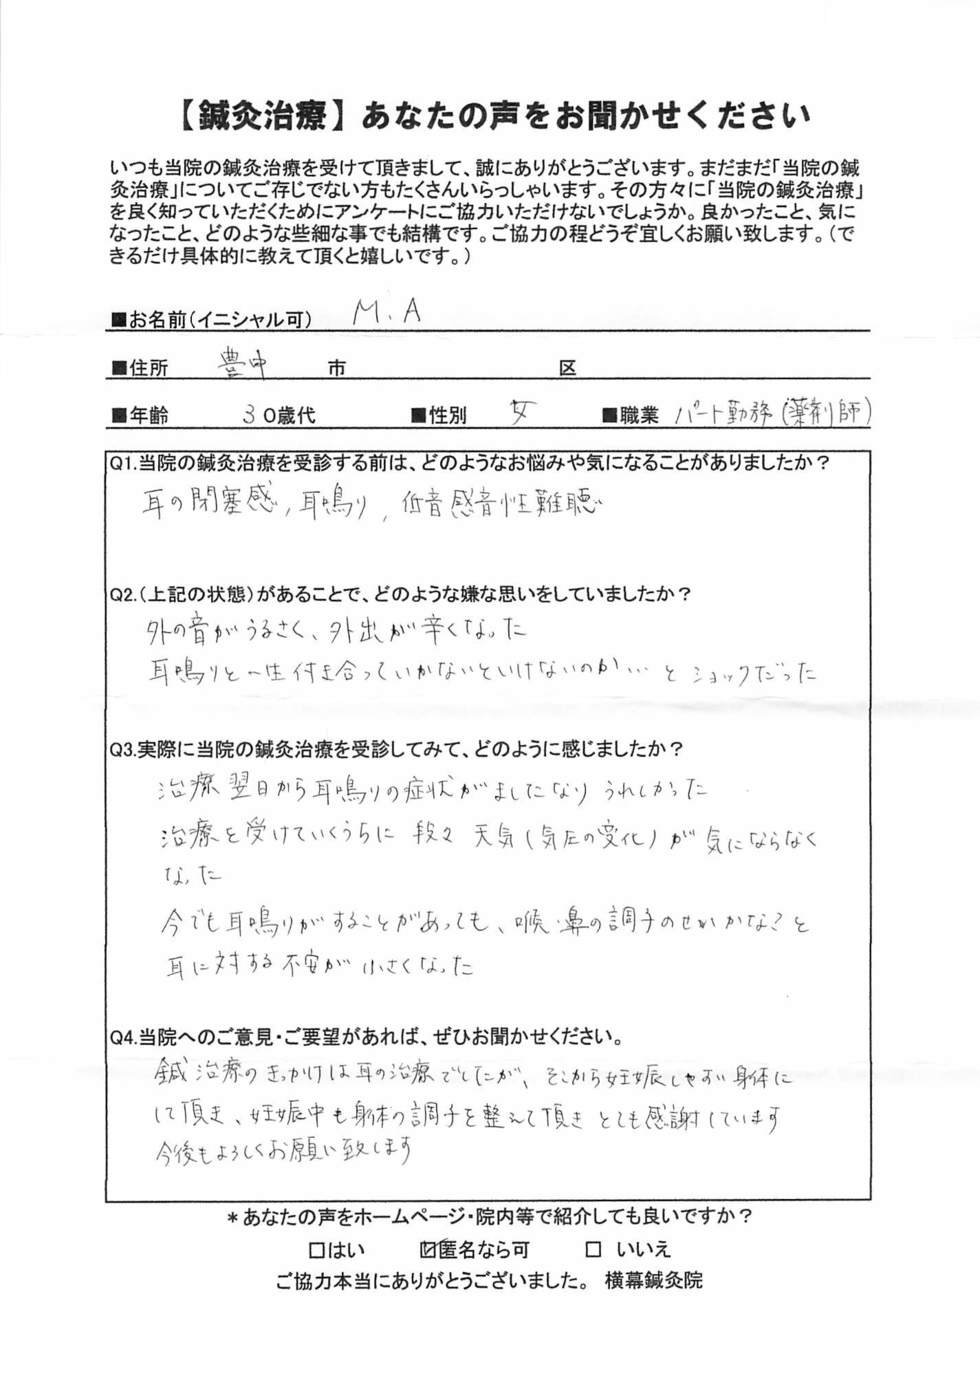 【鍼灸治療】あなたの声をお聞かせください
いつも当院の鍼灸治療を受けて頂きまして、誠にありがとうございます。まだまだ「当院の鍼
灸治療」についてご存じでない方もたくさんいらっしゃいます。その方々に「当院の鍼灸治療」
を良く知っていただくためにアンケートにご協力いただけないでしょうか。良かったこと、気に
なったこと、どのような些細な事でも結構です。ご協力の程どうぞ宜しくお願い致します。（で
きるだけ具体的に教えて頂くと嬉しいです。）
■お名前（イニシャル可） M.A
■住所 豊中 市 区
■年齢 30歳代 ■性別 女 ■職業 パート勤務（薬剤師）
Q1.当院の鍼灸治療を受診する前は、どのようなお悩みや気になることがありましたか？
耳の閉塞感，耳鳴り，低音感音性難聴
Q2.（上記の状態）があることで、どのような嫌な思いをしていましたか？
外の音がうるさく、外出が辛くなった
耳鳴りと一生付き合っていかないといけないのか…とショックだった
Q3.実際に当院の鍼灸治療を受診してみて、どのように感じましたか？
治療翌日から耳鳴りの症状がましになりうれしかった
治療を受けていくうちに段々天気（気圧の変化）が気にならなく
なった
今でも耳鳴りがすることがあっても、喉・鼻の調子のせいかな？と
耳に対する不安が小さくなった
Q4.当院へのご意見・ご要望があれば、ぜひお聞かせください。
鍼治療のきっかけは耳の治療でしたが、そこから妊娠しやすい身体に
して頂き、妊娠中も身体の調子を整えて頂きとても感謝しています
今後もよろしくお願い致します
＊あなたの声をホームページ・院内等で紹介しても良いですか？
□はい ☑匿名なら可 □ いいえ
ご協力本当にありがとうございました。 横幕鍼灸院